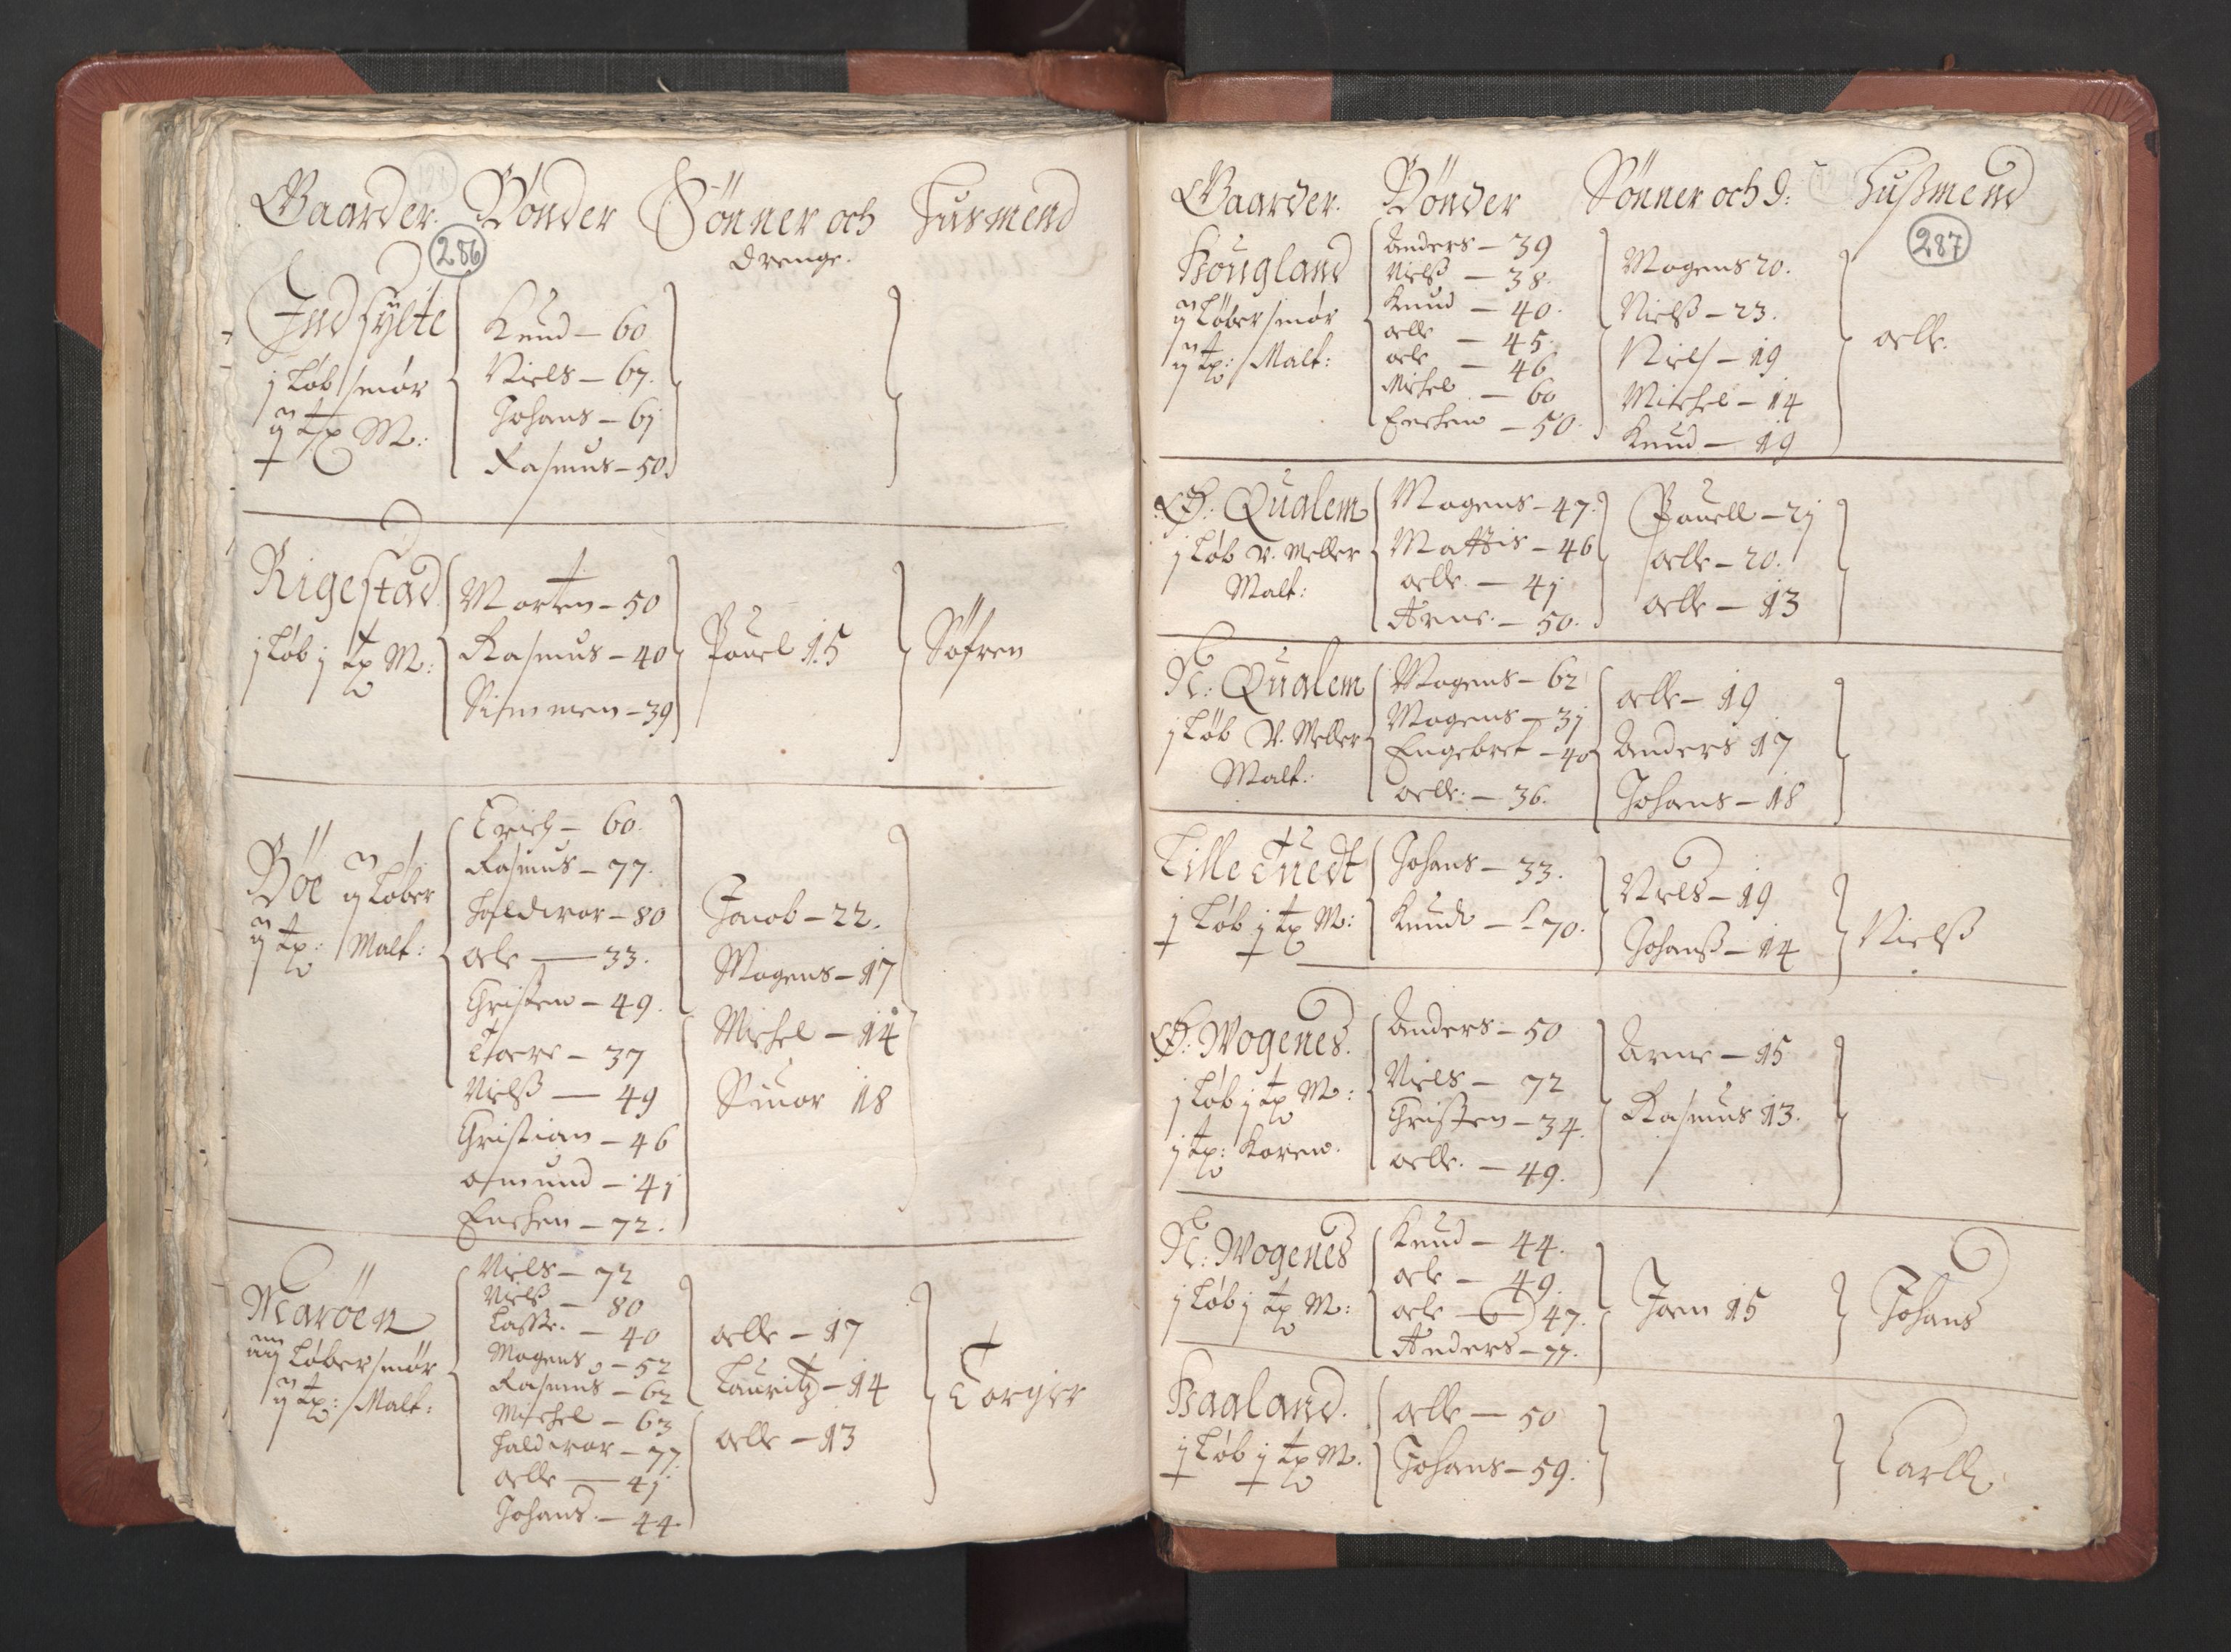 Gaarder. Bönder Sönner och Husmend
286
drenge.
Indsylte
j Løb smør
ij tp M:
Knud – 60
Niels – 67.
Johans – 6j
Rasmus – 50
Rigestad
j Løb j tp M:
Morten – 50
Rasmus – 40
Simmen – 39
Pouel 15
Søfren
Böe ij Løber
ij tp: Malt:
Erich – 60.
Rasmus – 77.
Haldwor – 80
Ole – 33.
Christen – 49.
Tore – 37
Nielß – 49
Christian – 46
Osmund – 4j
Enchen – 72.
Jacob – 22.
Mogens – 17
Michel – 14
Siuor 18
Maröen
iiij Løber smør
ij tp: Malt:
Niels – 72
Nielß – 80
Lasse. – 40
Mogens – 52
Rasmus – 62
Michel – 63
Haldwor – 77
Olle – 4j
Johans – 44
Olle – 17
Lauritz – 14
Olle – 13
Torgier
Gaarder. Bönder Sönner och d: Hußmend
287
Hougland
ij Løber smør
ij tp: Malt:
Anders – 39
Nielß – 38.
Knud – 40.
Olle – 45.
Ole – 46
Michel – 60
Enchen – 50.
Mogens 20.
Nielß – 23.
Niels – 19
Michel – 14
Knud – 19
Olle.
Ø: Qualem
j Løb V. Meller
Malt:
Mogens – 47.
Mattis – 46
Olle. – 4j
Arne. – 50.
Pouell – 2j
Olle – 20.
Olle – 13
N: Qualem
j Løb V. Meller
Malt:
Mogens – 62
Mogens – 3j
Engebret – 40
Olle: – 36.
Olle – 19
Anders 17
Johans – 18
Lille Tuedt
j Løb j tp M:
Johans – 33.
Knud – 70.
Niels – 19
Johanß – 14
Nielß
Ø: Wogenes.
j Løb j tp M:
j tp: Koren.
Anders – 50
Niels – 72
Christen – 34.
Olle. – 49.
Arne – 15
Rasmus 13.
N: Wogenes
j Løb j tp M:
Knud – 44.
Ole – 49.
Ole – 47.
Anders – 77.
Joen 15
Johans
Haaland.
j Løb j tp M.
Olle – 50
Johans – 59.
Carll